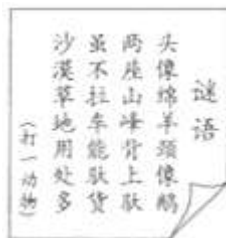 谜语
头像绵羊颈像鹅
两座山峰背上驮
虽不拉车能驮货
沙漠草地用处多
（打一动物）